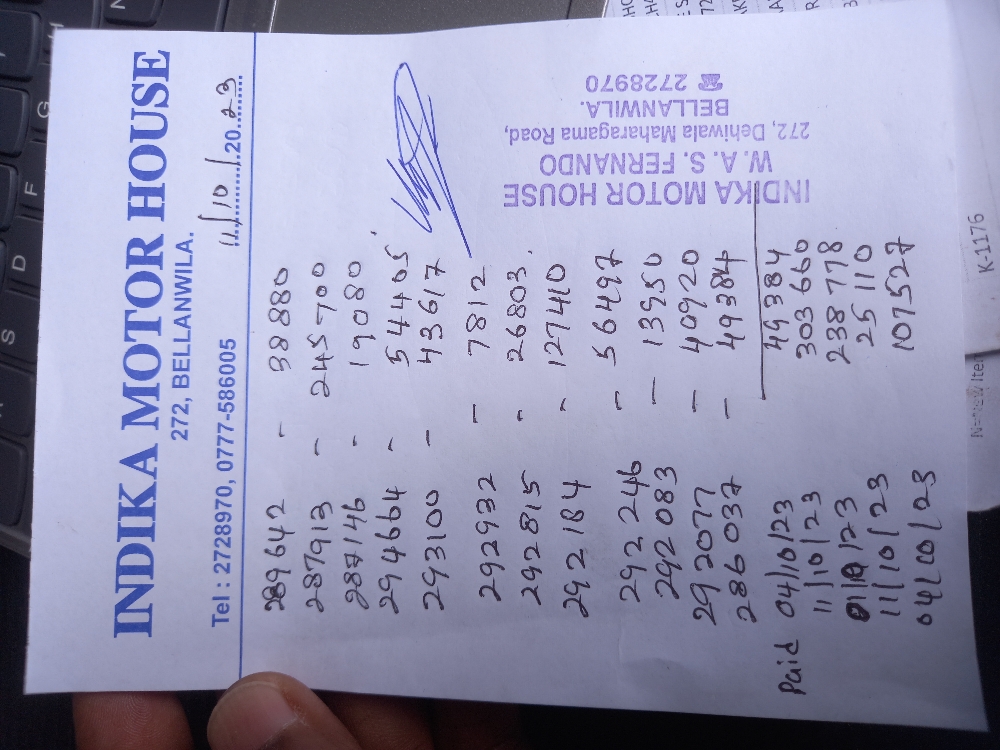 INDIKA MOTOR HOUSE
272, BELLANWILA.
Tel : 2728970, 0777-586005
11/10/2023
289642 - 38880
287913 - 245700
287146 - 19080
294664 - 54405
293100 - 43617
292932 - 7812
292815 - 26803
292184 - 127410
292246 - 56497
292083 - 13950
292077 - 40920
286037 - 49384
Paid 04/10/23 49384
11/10/23 303660
01/10/23 238778
11/10/23 25110
04/10/23 107527
INDIKA MOTOR HOUSE
W. A. S. FERNANDO
272, Dehiwala Maharagama Road,
BELLANWILA.
☎ 2728970
K-1176